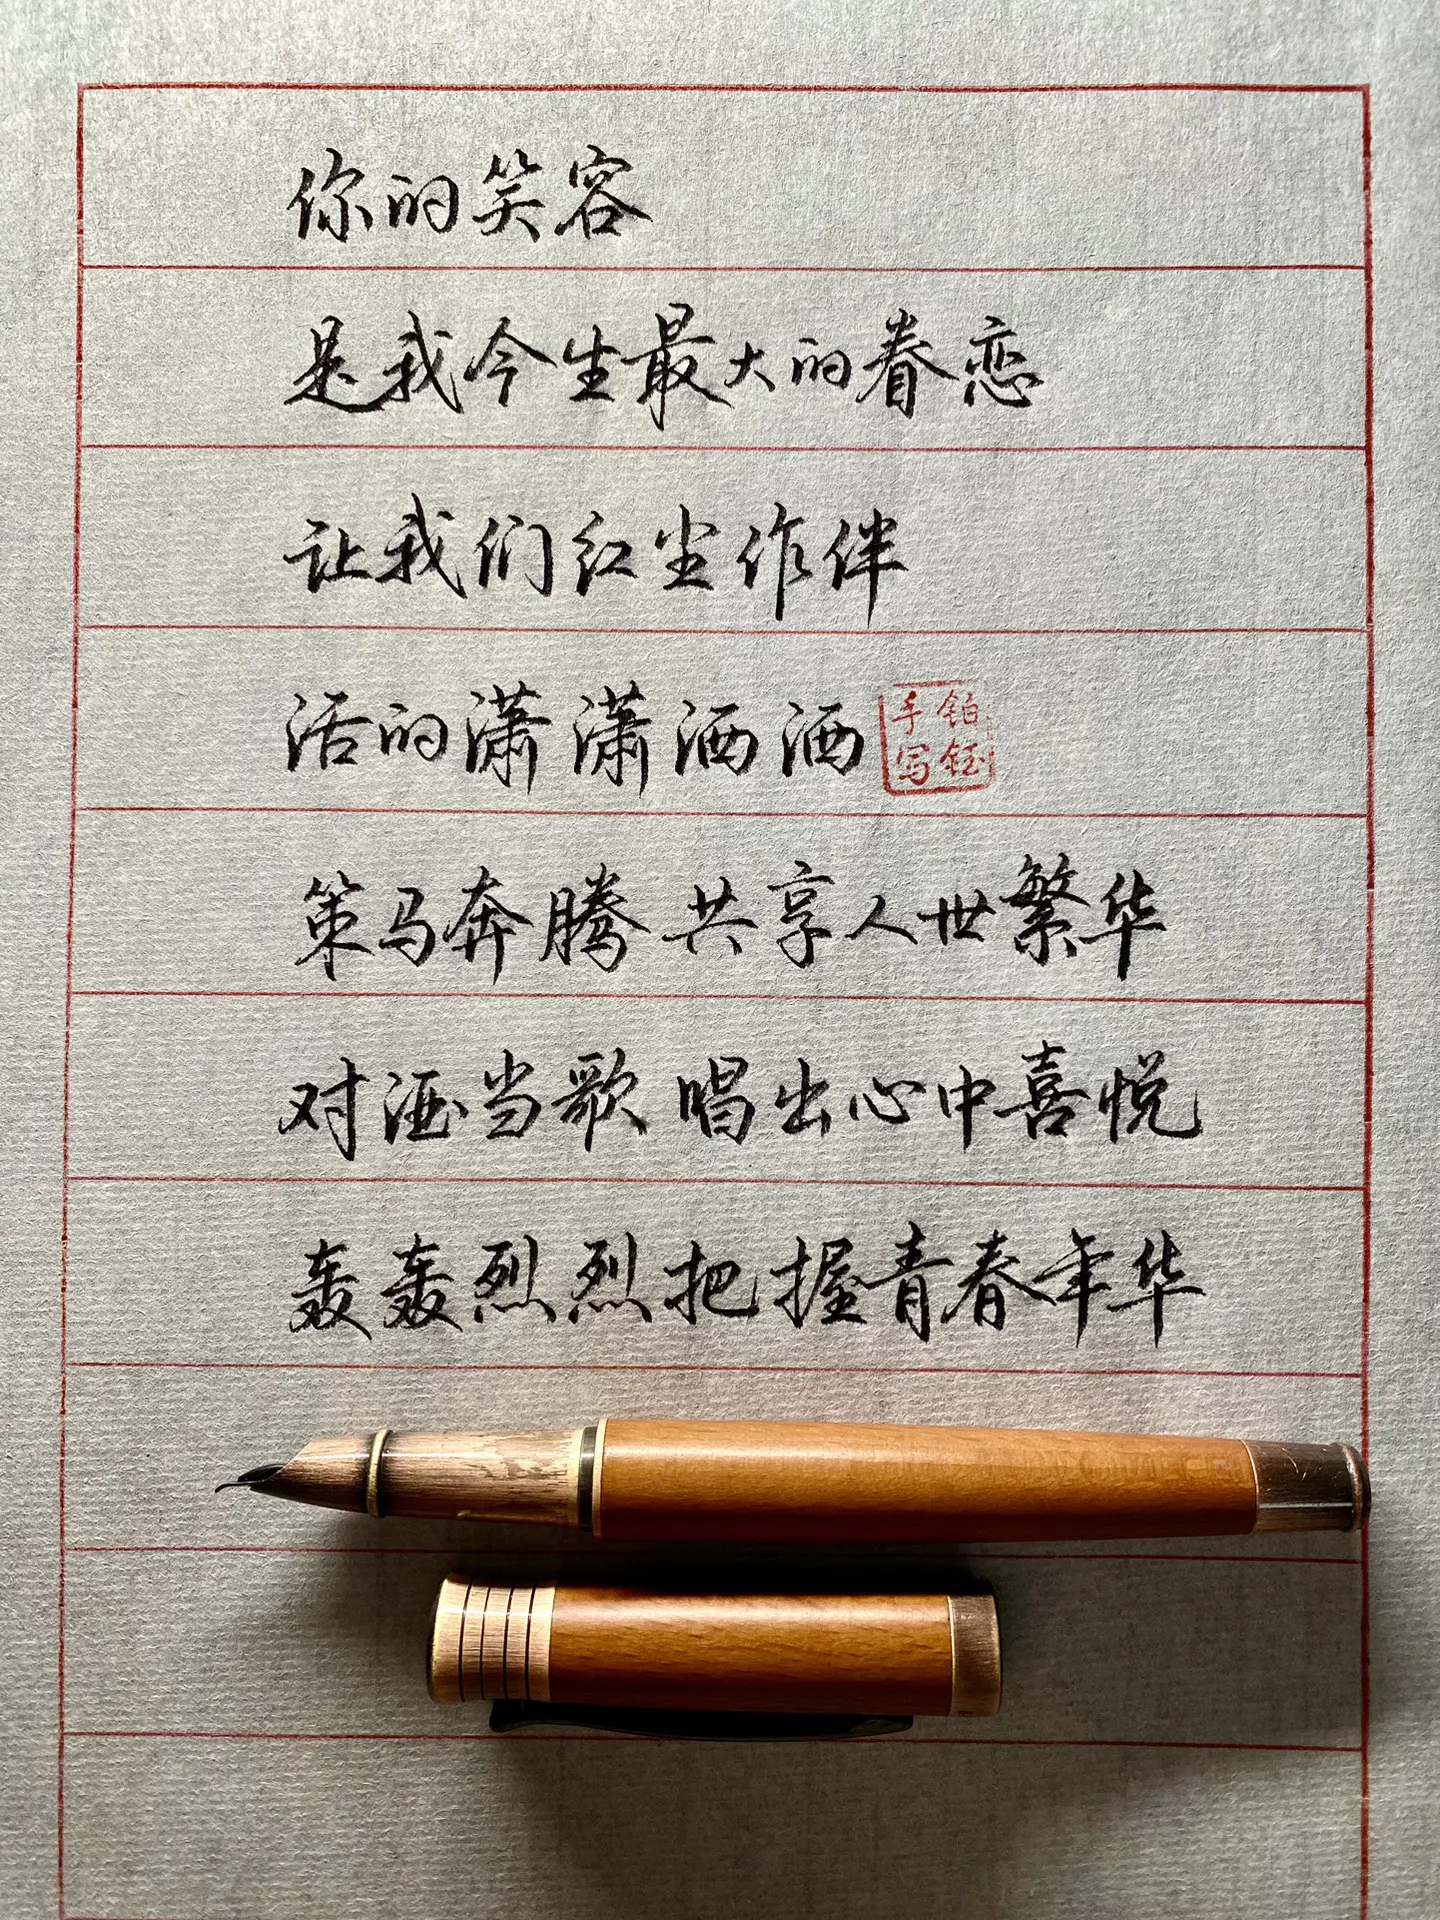 你的笑容
是我今生最大的眷恋
让我们红尘作伴
活的潇潇洒洒
铂钰
手写
策马奔腾 共享人世繁华
对酒当歌 唱出心中喜悦
轰轰烈烈把握青春年华